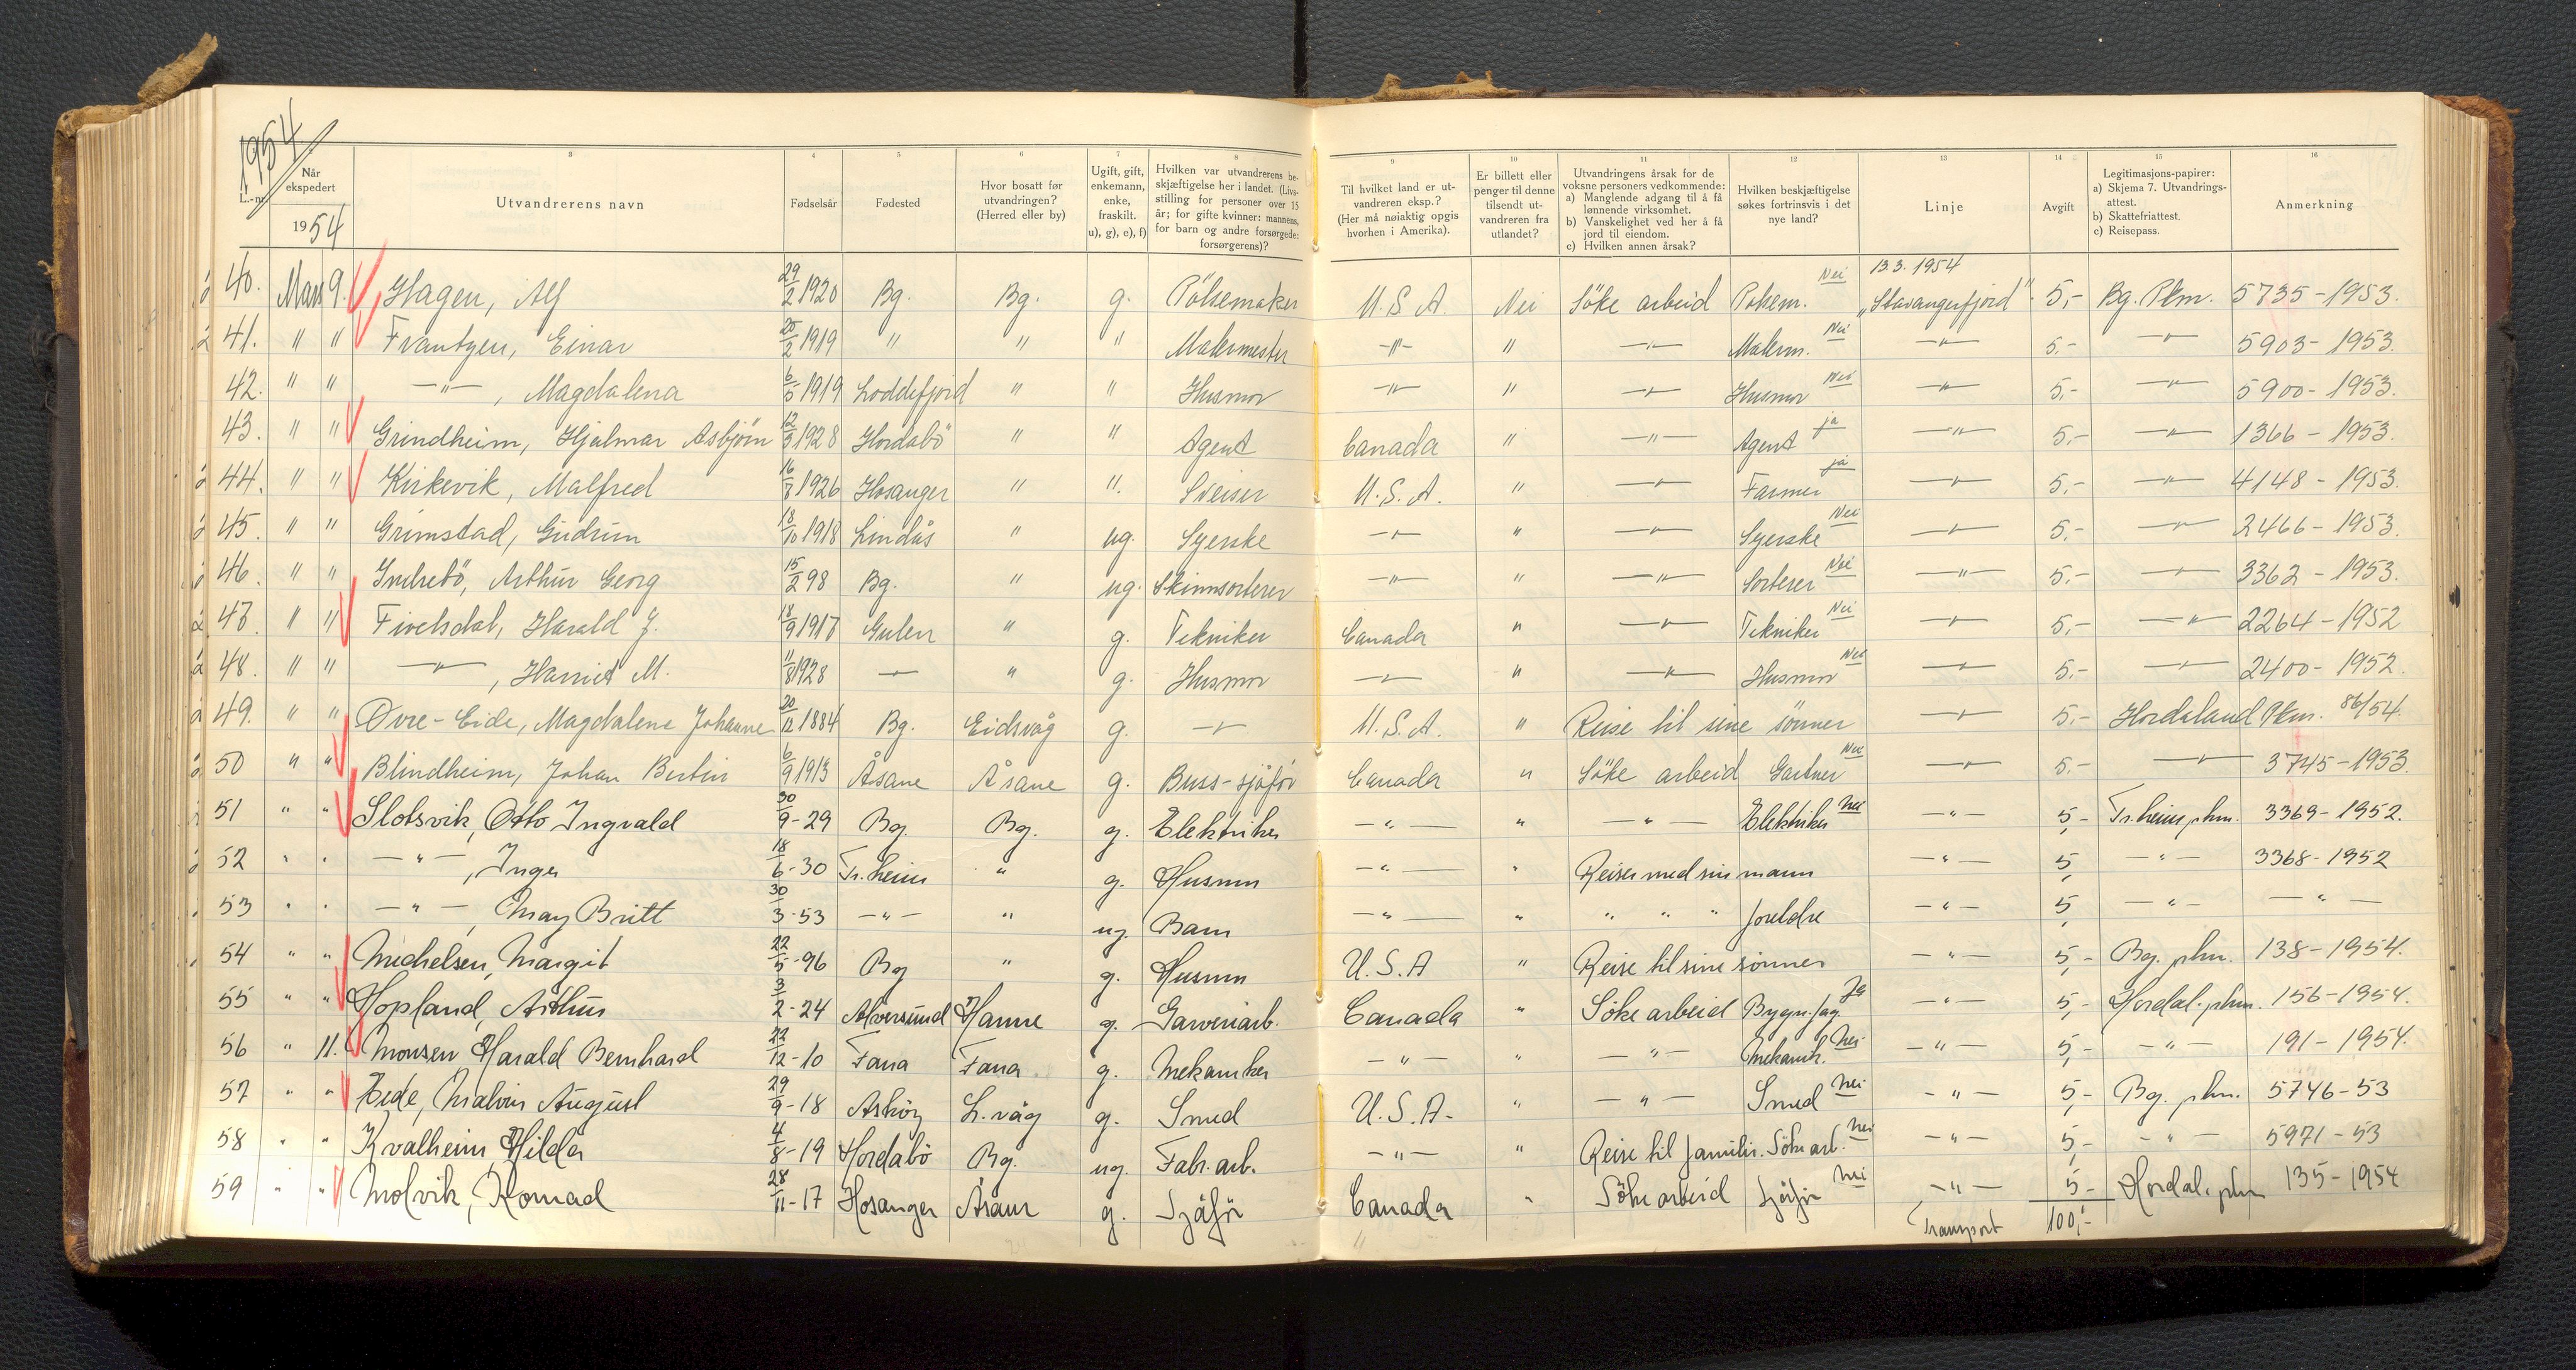 1954
L.-nr. Når ekspedert 1954 3 Utvandrerens navn 4 Fødselsår 5 Fødested 6 Hvor bosatt før utvandringen? (Herred eller by) 7 Ugift, gift, enkemann, enke, fraskilt. u), g), e), f) 8 Hvilken var utvandrerens beskjæftigelse her i landet. (Livsstilling for personer over 15 år; for gifte kvinner: mannens, for barn og andre forsørgede: forsørgerens)? 9 Til hvilket land er utvandreren eksp.? (Her må nøiaktig opgis hvorhen i Amerika). 10 Er billett eller penger til denne tilsendt utvandreren fra utlandet? 11 Utvandringens årsak for de voksne personers vedkommende: a) Manglende adgang til å få lønnende virksomhet. b) Vanskelighet ved her å få jord til eiendom. c) Hvilken annen årsak? 12 Hvilken beskjæftigelse søkes fortrinsvis i det nye land? 13 Linje 14 Avgift 15 Legitimasjons-papirer: a) Skjema 7. Utvandringsattest. b) Skattefriattest. c) Reisepass. 16 Anmerkning
40. Mars 9. Hagen, Alf 29/2 1920 Bg. Bg. g. Pölsemaker U.S.A. Nei Söke arbeid Pölsem. Nei 13.3.1954 "Stavangerfjord" 5,- Bg. Pkm. 5735-1953.
41. " " Frantzen, Einar 25/2 1919 " " " Malermester -"- " -"- Malerm. Nei -"- 5,- -"- 5903-1953.
42. " " -"-, Magdalena 6/5 1919 Loddefjord " " Husmor -"- " -"- Husmor Nei -"- 5,- -"- 5900-1953.
43. " " Grindheim, Hjalmar Asbjörn 12/3 1928 Hordabö " " Agent Canada " -"- Agent ja -"- 5,- -"- 1366-1953.
44. " " Kirkevik, Malfred 16/7 1926 Hosanger " ". Sveiser U.S.A. " -"- Farmer ja -"- 5,- -"- 4148-1953.
45. " " Grimstad, Gudrun 18/10 1918 Lindås " ug. Syerske -"- " -"- Syerske Nei -"- 5,- -"- 2466-1953.
46. " " Indrebö, Arthur Georg 15/2 98 Bg. " ug. Skinnsorterer -"- " -"- Sorterer Nei -"- 5,- -"- 3362-1953.
47. " " Fivelsdal, Harald J. 18/9 1917 Gulen " g. Tekniker Canada " -"- Tekniker Nei -"- 5,- -"- 2264-1952
48. " " -"-, Harriet M. 11/8 1928 -"- " g. Husmor -"- " -"- Husmor Nei -"- 5,- -"- 2400-1952.
49. " " Øvre-Eide, Magdalene Johanne 20/12 1884 Bg. Eidsvåg g. -"- U.S.A. " Reise til sine sönner -"- 5,- Hordaland Pkm. 86/54.
50 " " Blindheim, Johan Bertin 6/9 1913 Åsane Åsane g. Buss-sjåför Canada " Söke arbeid Gartner Nei -"- 5,- -"- 3745-1953.
51 " " Slotsvik, Otto Ingvald 30/9-29 Bg. Bg. g. Elektriker -"- " -"- Elektriker nei -"- 5,- Tr.heim pkm. 3369-1952.
52 " " -"-, Inger 18/6-30 Tr.heim " g. Husmor -"- " Reiser med sin mann -"- 5,- -"- 3368-1952
53 " " -"-, May Britt 30/3-53 -"- " ug. Barn -"- " " " " foreldre -"- 5,- -"- -"-
54 " " Michelsen, Margit 22/5-96 Bg " g. Husmor U.S.A " Reise til sine sönner -"- 5,- Bg. pkm. 138-1954.
55 " " Hopland, Arthur 3/2-24 Alversund Hamre g. Garveriarb. Canada " Söke arbeid Bygn.fag. Ja -"- 5,- Hordal. pkm. 156-1954.
56 " 11. Monsen Harald Bernhard 22/12-10 Fana Fana g. Mekaniker -"- " -"- Mekanik. nei -"- 5,- -"- 191-1954.
57 " " Eide, Malvin August 29/9-18 Asköy L.våg g. Smed U.S.A. " -"- Smed nei -"- 5,- Bg. pkm. 5746-53
58 " " Kvalheim Hilda 4/8-19 Hordabö Bg. ug. Fabr.arb. -"- " Reise til familie. Söke arb. nei -"- 5,- -"- 5971-53
59 " " Molvik, Konrad 28/11-17 Hosanger Åsane g. Sjåför Canada " Söke arbeid Sjåför nei -"- 5,- Hordal. pkm 135-1954
Transport 100,-